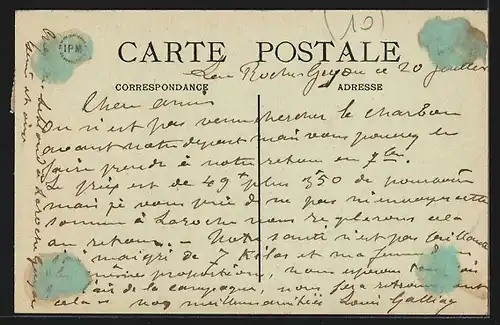 (10)
IPM
CARTE POSTALE
CORRESPONDANCE
ADRESSE
La Roche Guyon ce 20 juillet
Cher amis
On n'est pas venu chercher le charbon
avant notre départ mais vous pouvez le
faire prendre à notre retour en 7bre
Le prix est de 49f plus 3f50 de pourboire
mais je vous prie de ne pas m'envoyer cette
somme à Laroche nous règlerons cela
au retour. - Notre santé n'est pas brillante
maigri de 7 Kilos et ma femme
proportions, nous espérons
de la campagne, nous fera
cela nos meilleures amitiés Louis
à Laroche Guyon